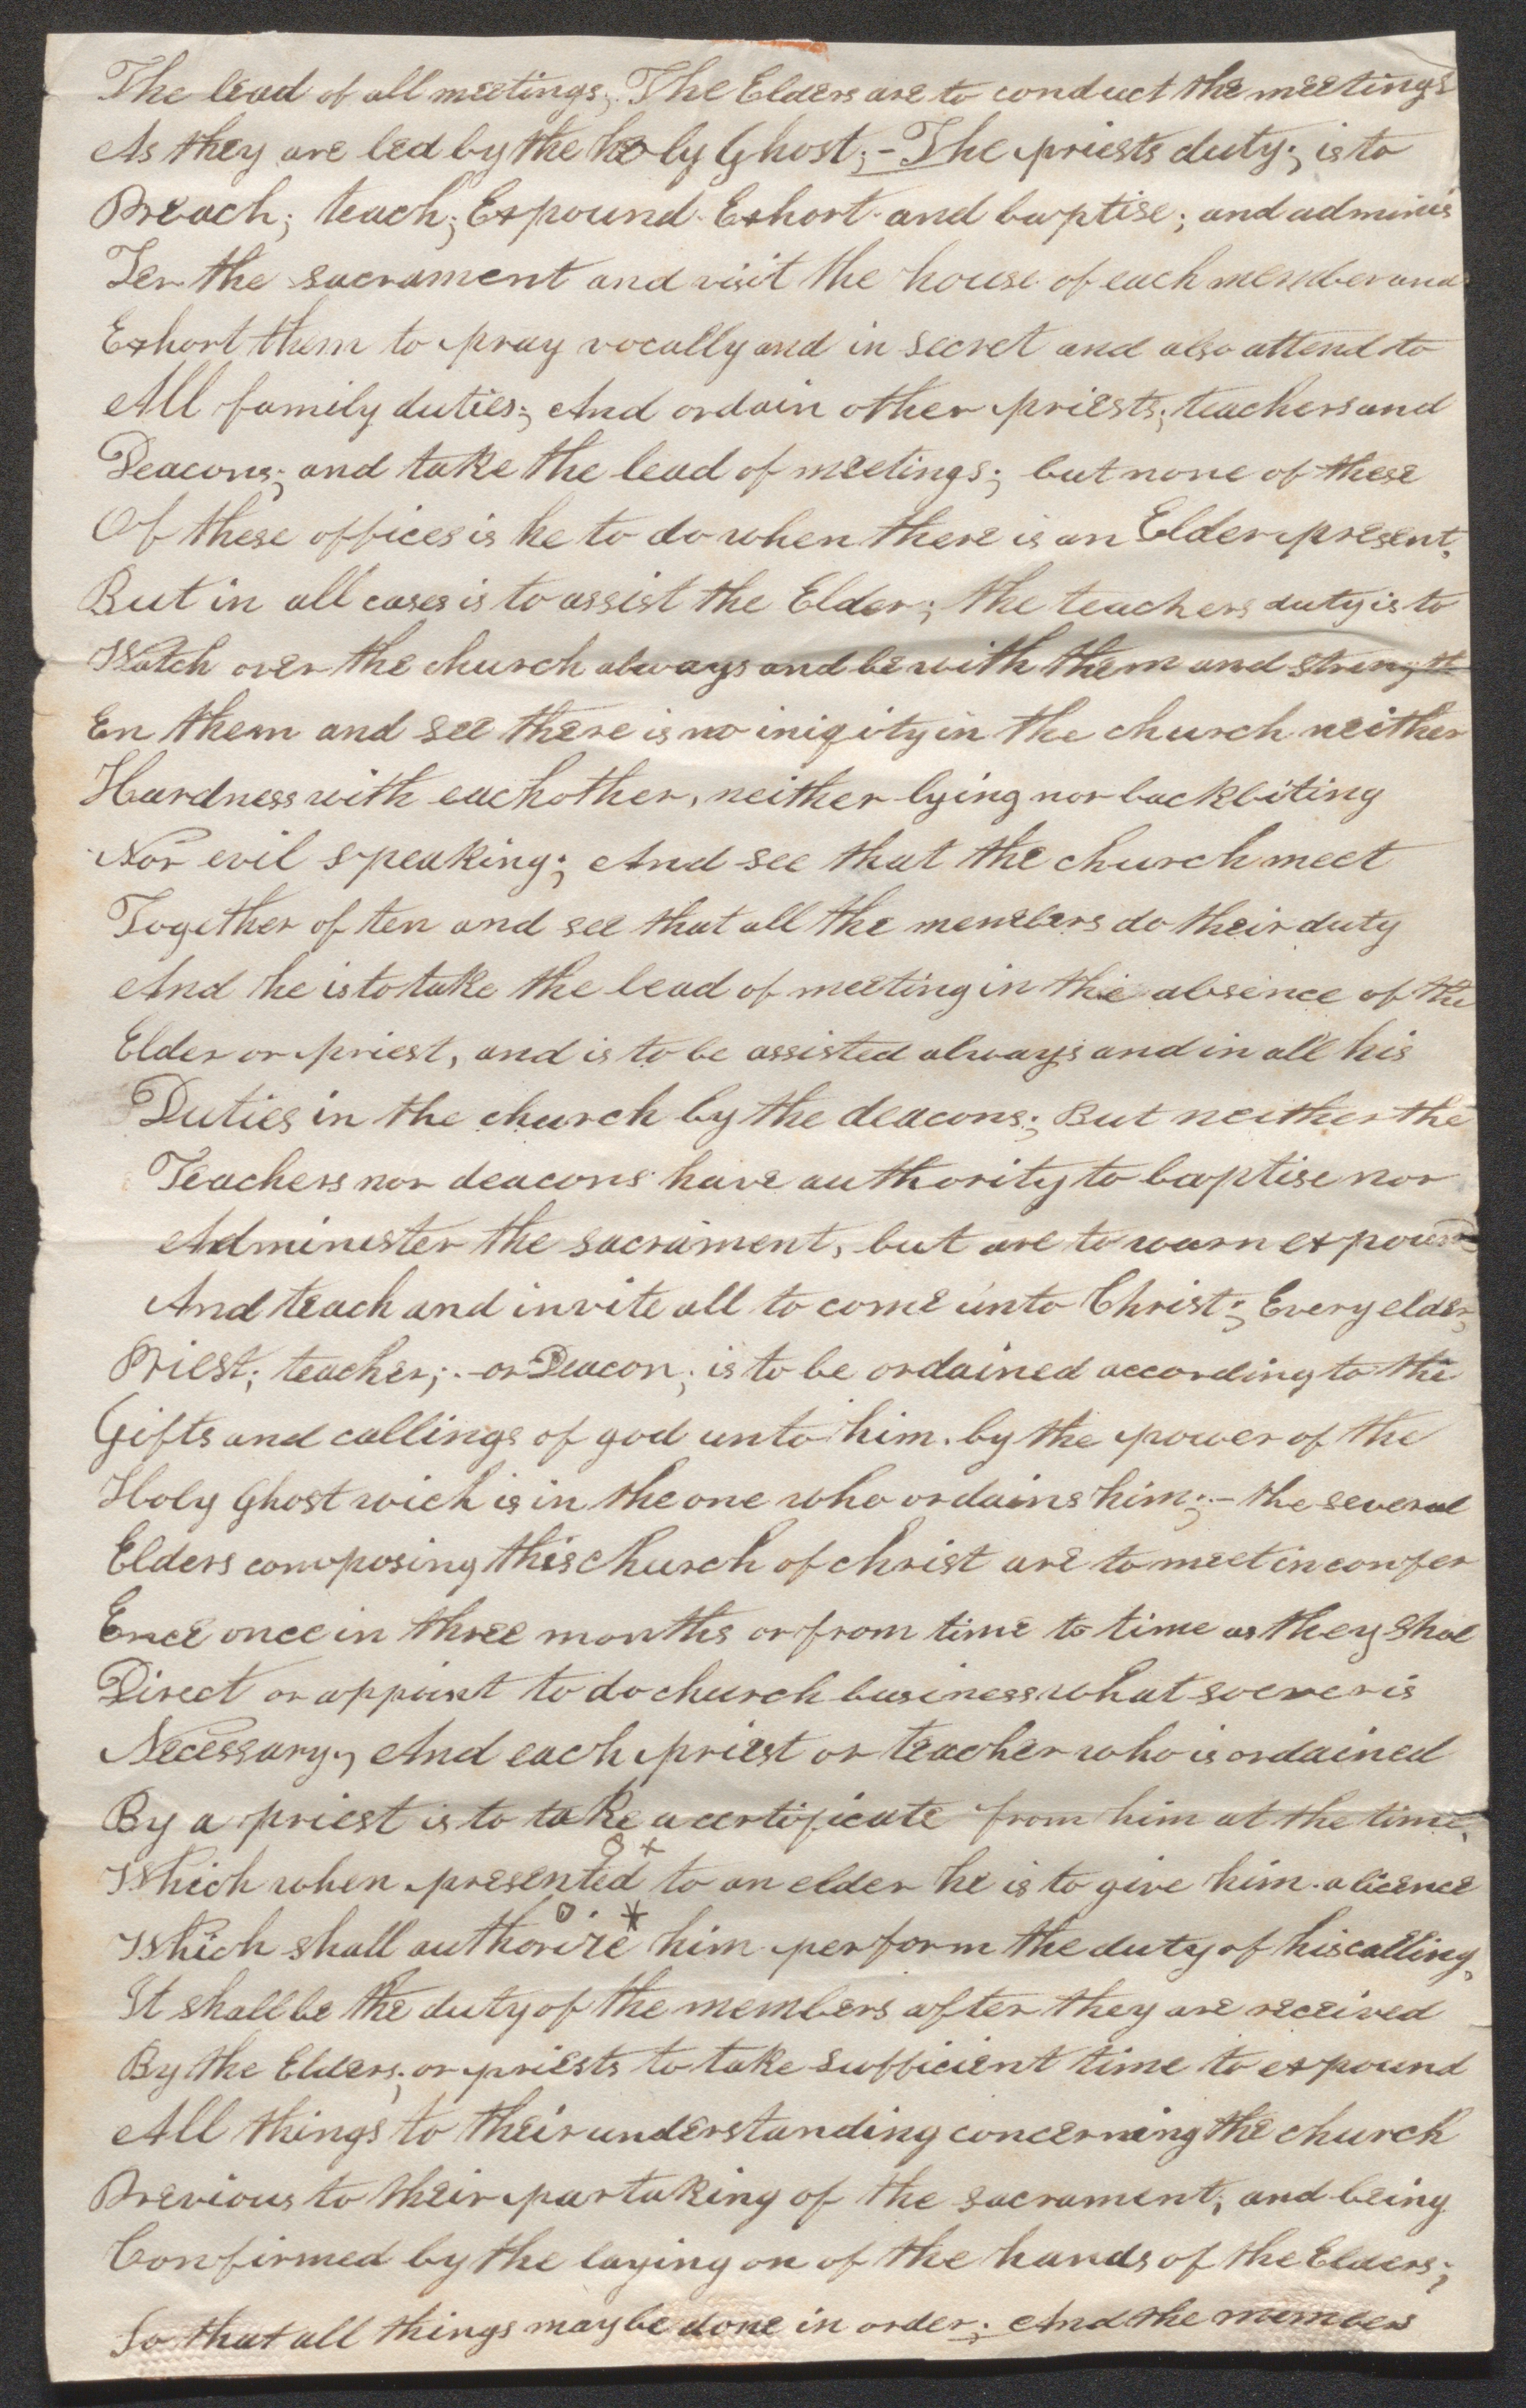 The lead of all meetings; The Elders are to conduct the meetings
As they are led by the holy Ghost; - The priests duty; is to
Preach; teach; Expound Exhort and baptise; and adminis
Ter the sacrament and visit the house of each member and
Exhort them to pray vocally and in secret and also attend to
All family duties; And ordain other priests; teachers and
Deacons; and take the lead of meetings; but none of these
Of these offices is he to do when there is an Elder present,
But in all cases is to assist the Elder; the teachers duty is to
Watch over the church always and be with them and strength
En them and see there is no iniqity in the church neither
Hardness with eachother, neither lying nor backbiting
Nor evil speaking; And see that the church meet
Together often and see that all the members do their duty
And he is to take the lead of meeting in the absence of the
Elder or priest, and is to be assisted always and in all his
Duties in the church by the deacons; But neither the
Teachers nor deacons have authority to baptise nor
Administer the sacrament, but are to warn expound
And teach and invite all to come unto Christ; Every elder,
Priest; teacher; - or Deacon; is to be ordained according to the
Gifts and callings of god unto him. by the power of the
Holy Ghost wich is in the one who ordains him; - the several
Elders composing this church of christ are to meet in confer
Ence once in three months or from time to time as they shal
Direct or appoint to do church business what soever is
Necessary, And each priest or teacher who is ordained
By a priest is to take a certificate from him at the time,
Which when presented to an elder he is to give him a licence
Which shall authorize him perform the duty of his calling,
It shall be the duty of the members after they are received
By the Elders; or priests to take sufficient time to expound
All things to their understanding concerning the church
Previous to their partaking of the sacrament; and being
Confirmed by the laying on of the hands of the Elders;
So that all things may be done in order; And the members